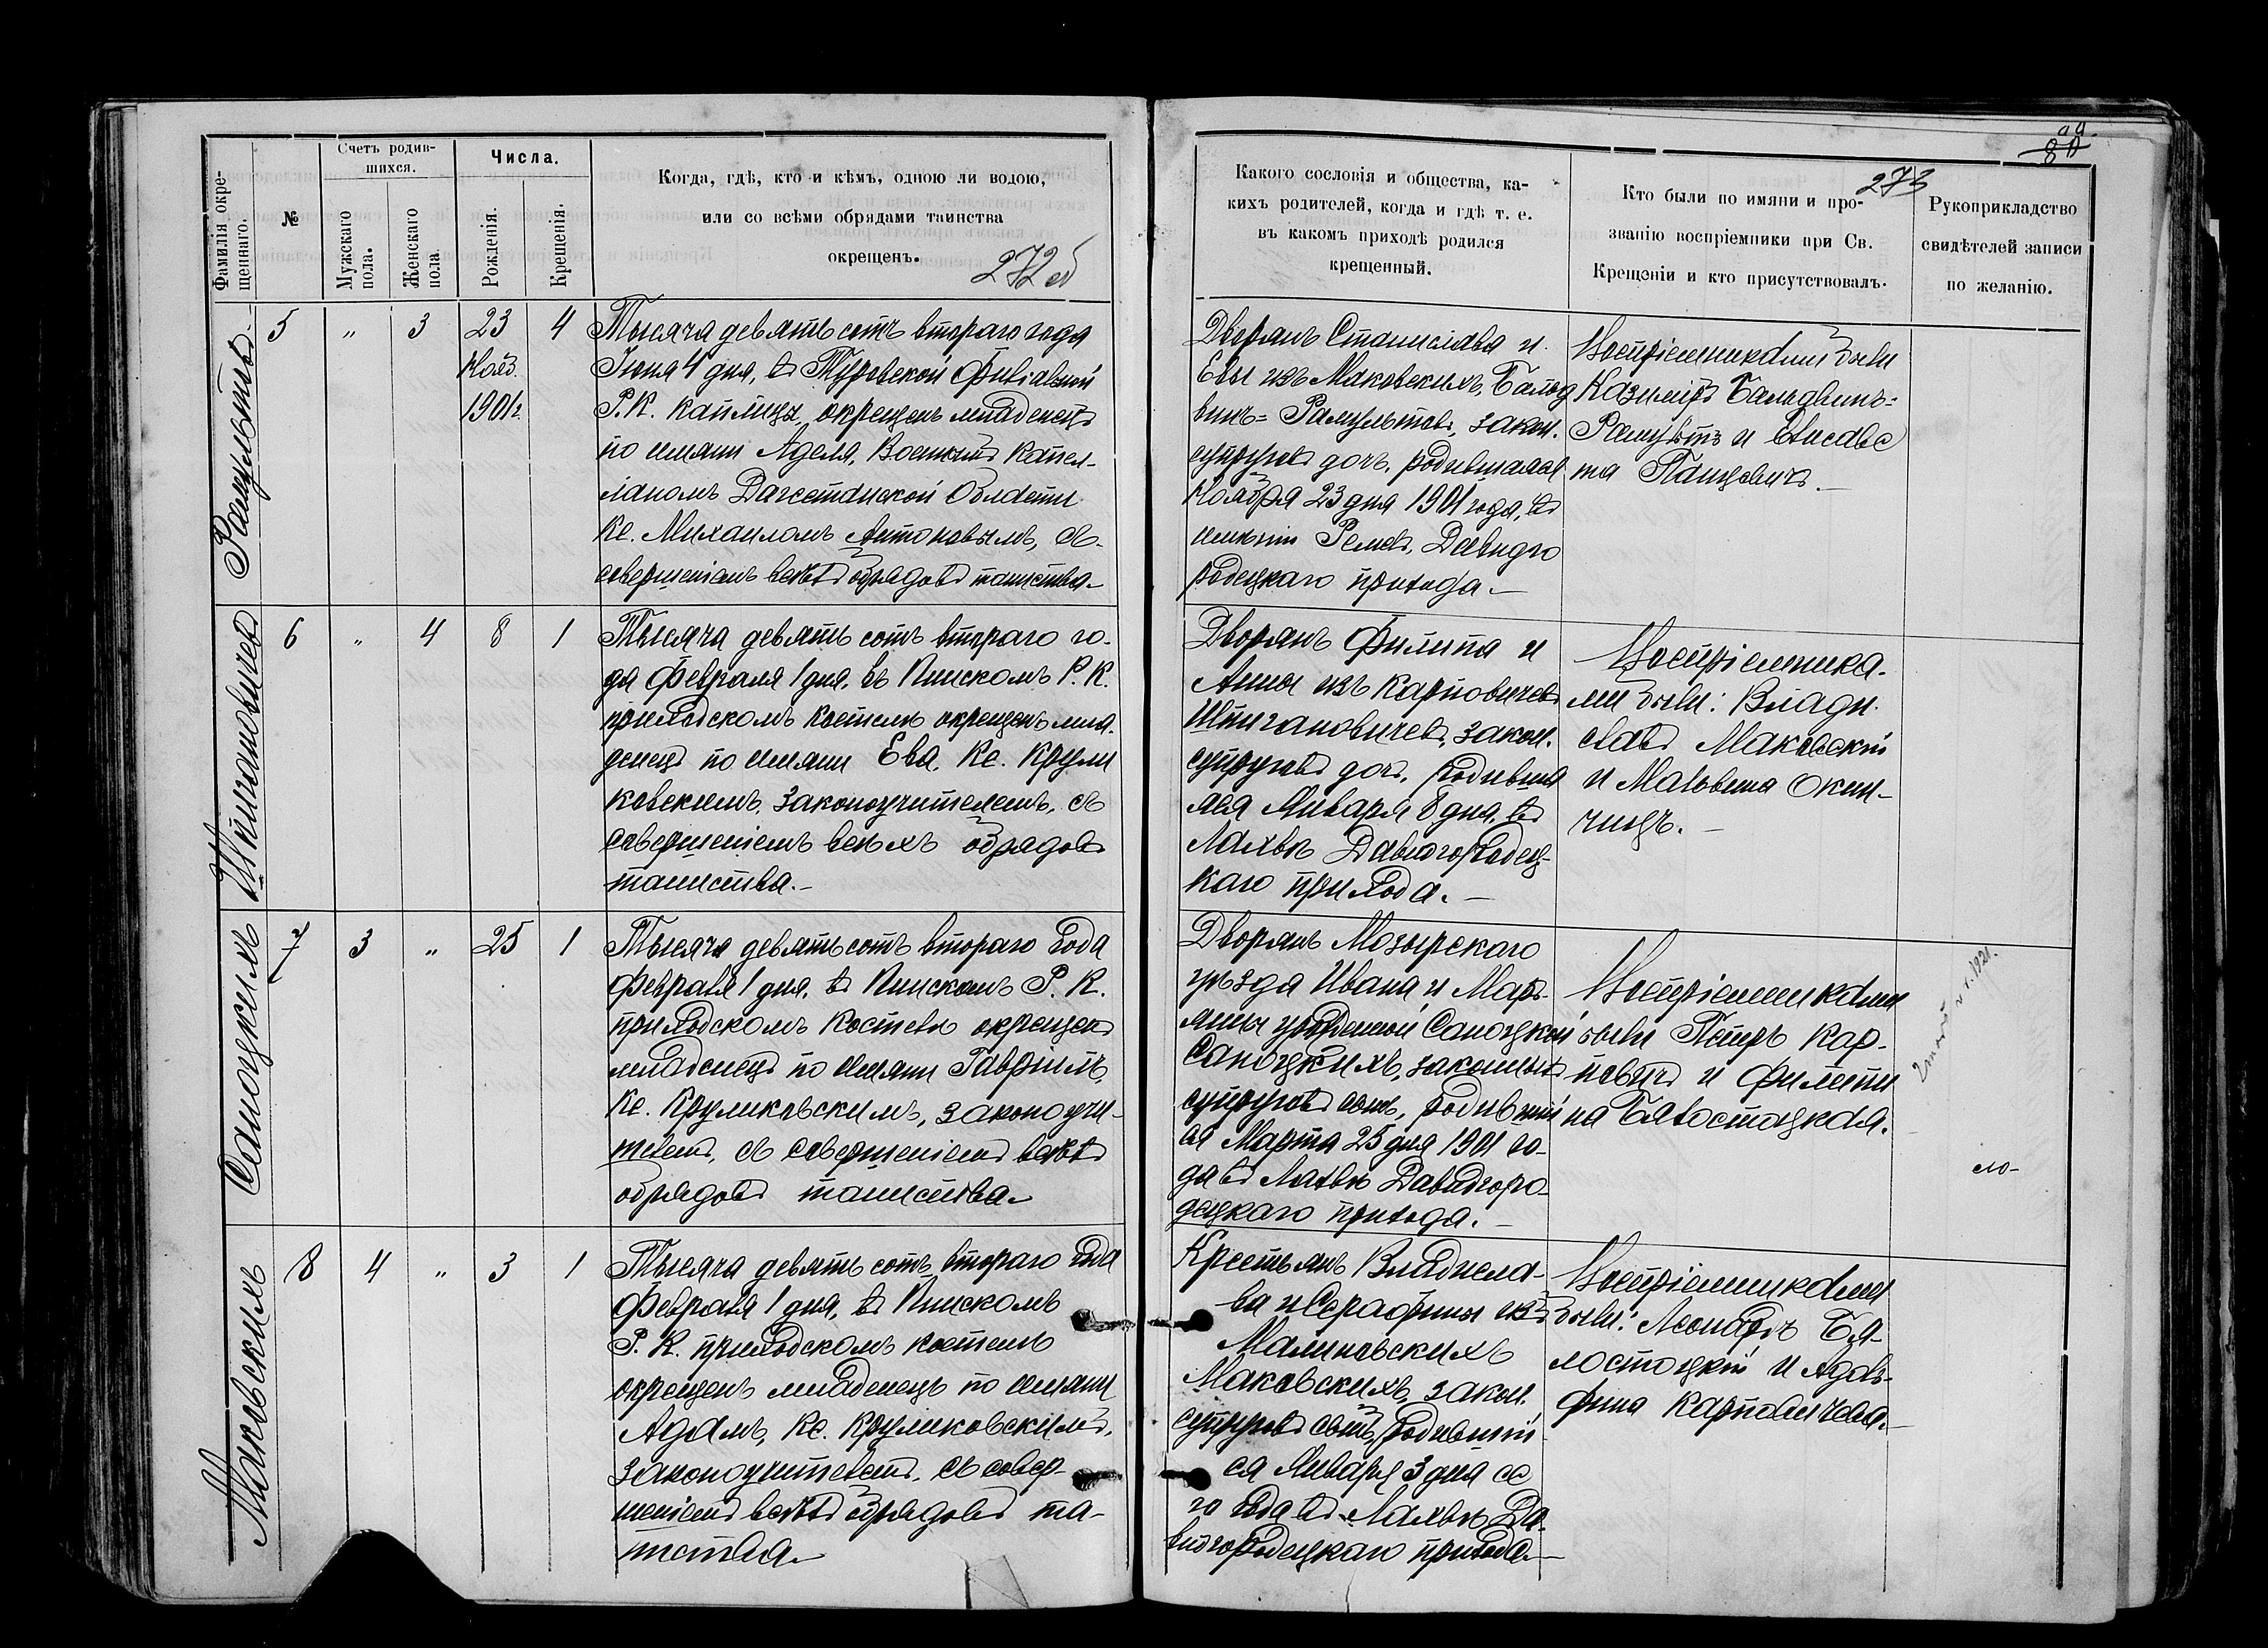 Фамилія окре-
щеннаго.
№
Счетъ родив-
шихся.
Мужскаго
пола.
Женскаго
пола.
Числа.
Рожденія.
Крещенія.
Когда, гдѣ, кто и кѣмъ, одною ли водою,
или со всѣми обрядами таинства
окрещенъ.
272 об
Рамультовъ
5
"
3
23
Нояб.
1901 г.
4
Тысяча девятьсотъ второго года
Іюня 4 дня, въ Туровской Филіальной
Р. К. каплицѣ, окрещенъ младенецъ
по имяни Аделя, Военнымъ Капел-
ланомъ Дагестанской Области
Кс. Михаиломъ Антоновымъ, съ
совершеніемъ всѣхъ обрядовъ таинства.
Шпигановичевъ
6
"
4
8
1
Тысяча девятьсотъ второго го-
да Февраля 1 дня, въ Пинскомъ Р. К.
приходскомъ костелѣ окрещенъ мла-
денецъ по имяни Ева, Кс. Крули
ковскимъ, законоучителемъ, съ
совершеніемъ всѣхъ обрядовъ
таинства.
Саноцкихъ
7
3
"
25
1
Тысяча девятьсотъ второго года
Февраля 1 дня, въ Пинскомъ Р. К.
приходскомъ костелѣ окрещенъ
младенецъ по имяни Гавріилъ,
Кс. Круликовскимъ, законоучи-
телемъ, съ совершеніемъ всѣхъ
обрядовъ таинства.
Маковскихъ
8
4
"
3
1
Тысяча девятьсотъ второго года
Февраля 1 дня, въ Пинскомъ
Р. К. приходскомъ костелѣ
окрещенъ младенецъ по имяни
Адамъ, Кс. Круликовскимъ,
законоучителемъ, съ совер-
шеніемъ всѣхъ обрядовъ та-
инства.
80
273
Какого сословія и общества, ка-
кихъ родителей, когда и гдѣ т. е.
въ какомъ приходѣ родился
крещенный.
Кто были по имяни и про-
званію воспріемники при Св.
Крещеніи и кто присутствовалъ.
Рукоприкладство
свидѣтелей записи
по желанію.
Дворянъ Станислава и
Евы изъ Маковскихъ, Бальд
винъ=Рамультовъ, закон.
супруговъ дочь, родившаяся
Ноября 23 дня 1901 года, въ
имѣніи Ремель, Давидго
родецкаго прихода.
Воспріемниками были
Казиміръ Бальдвинъ=
Рамультъ и Елисаве
та Пащевичъ.
Дворянъ Филипа и
Анны изъ Карповичевъ
Шпигановичевъ, закон.
супруговъ дочь, родивша
яся Января 8 дня, въ
Лахвѣ Давидгородец-
каго прихода.
Воспріемника-
ми были: Влади-
славъ Маковскій
и Мальвина Окин-
чицъ.
Дворянъ Мозырскаго
уѣзда Ивана и Марь-
яны урожденной Саноцкой
Саноцкихъ, законныхъ
супруговъ сынъ, родившій
ся Марта 25 дня 1901 го-
да въ Лахвѣ Давидгоро-
децкаго прихода.
Воспріемниками
были Петръ Кар-
повичъ и Филипи
на Бялостоцкая.
1921.
Крестьянъ Владисла-
ва и Серафины изъ
Малиновскихъ
Маковскихъ, закон.
супруговъ сынъ, родившій
ся Января 3 дня се
го года въ Лахвѣ Да-
видгородецкаго прихода.
Воспріемниками
были: Леонардъ Бя-
лостоцкій и Адоль-
фина Карповичева.